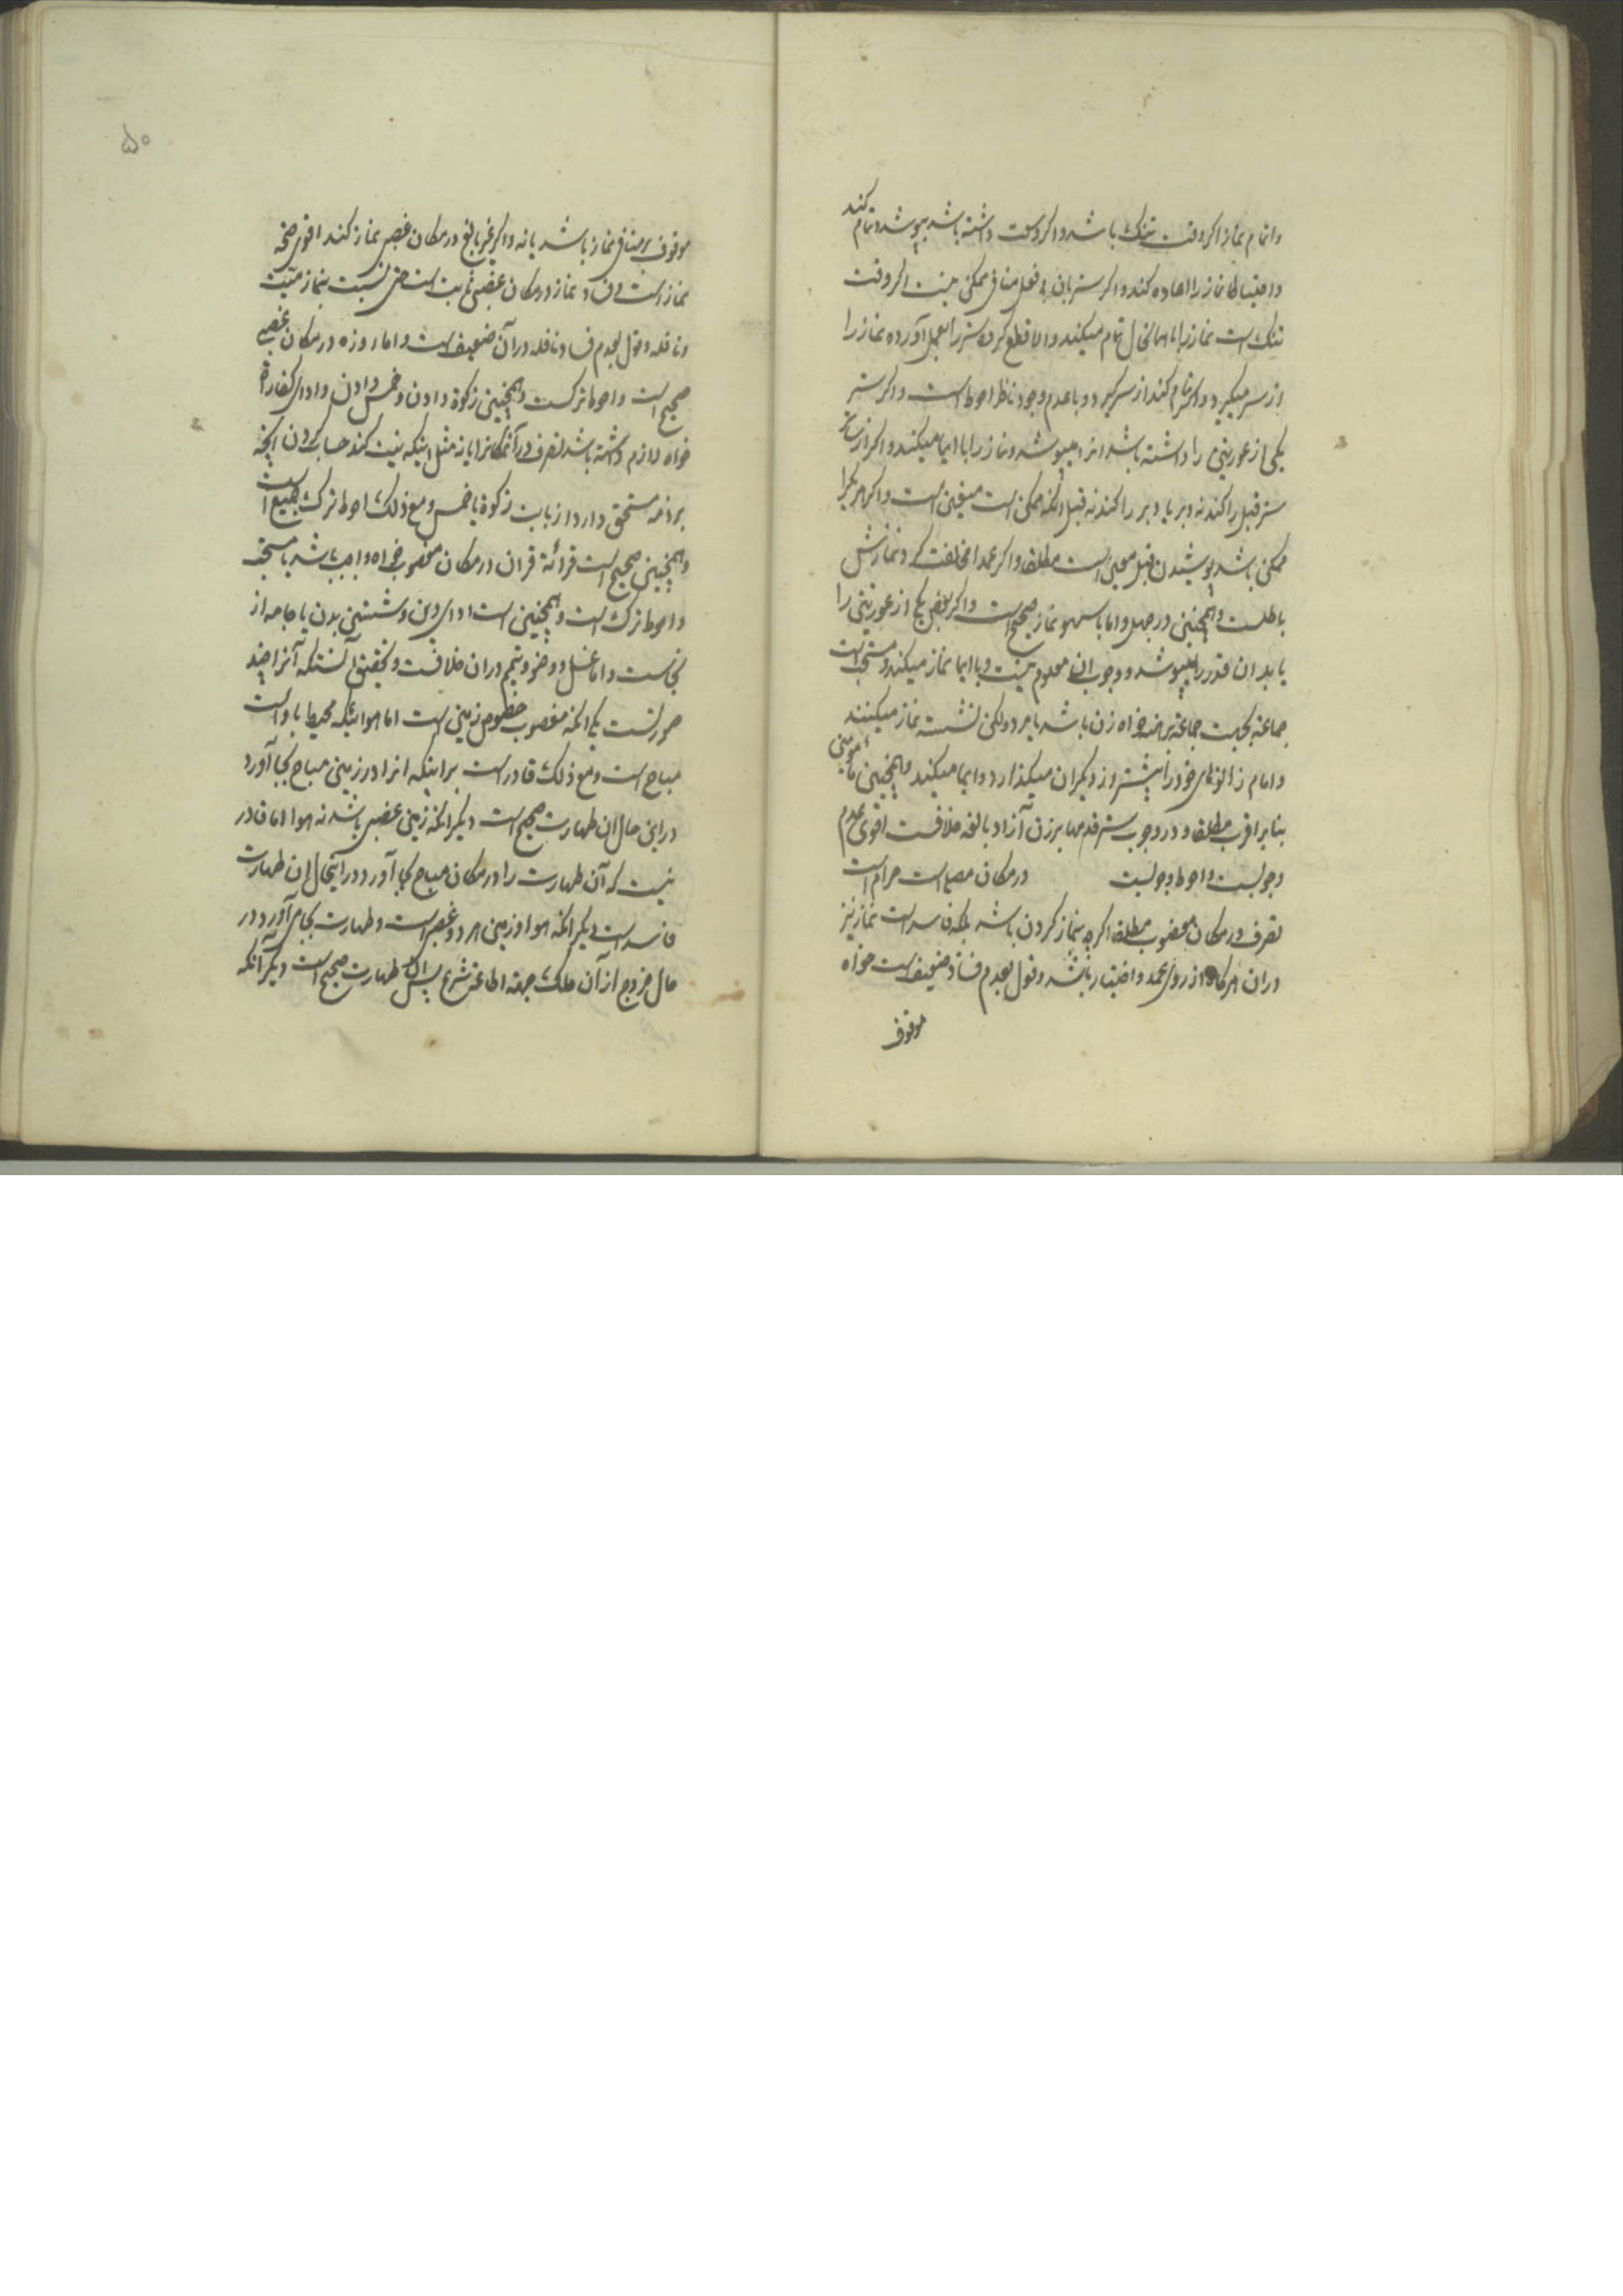 واتمام نماز اکر وقت تنک باشد واکر وسعت داشته باشد بپوشد وتمام کند
واحتیاطا نماز را اعاده کند واکر ستر بان بی فعل منافی ممکن نیست اکر وقت
تنک است نماز را با همان حال تمام میکند والا قطع کرده ستر را بعمل آورده نماز را
از سر میکیرد واکر تمام کند از سر کیرد وبا عدم وجود ناظر احوط است واکر ستر
یکی از عورتین را داشته باشد انرا میپوشد ونماز را با ایما میکند واکر از ساتر
ستر قبل را کند نه دبر یا دبر را کند نه قبل انکه ممکن است متعین است واکر هر یک را
ممکن باشد پوشیدن قبل معین است مطلقا واکر عمدا مخالفت کرد نمازش
باطلست وهمچنین در جهل واما با سهو نماز صحیح است واکر بعض یکی از عورتین را
یابد ان قدر را میپوشد ووجوب ان معلوم نیست وبا ایما نماز میکند ومستحب است
جماعة بجهت جماعة برهنه خواه زن باشد یا مرد ولکن نشسته نماز میکنند
وامام زانوهای خود را پیشتر از دیکران میکذارد وایما میکند وهمچنین مأمومین
بنابر اقرب مطلقا ودر وجوب ستر قدمها بر زن آزاد بالغه خلافست اقوی عدم
وجوبست واحوط وجوبست در مکان مصلی است حرام است
تصرف در مکان مغضوب مطلقا اکرچه بنماز کردن باشد بلکه فاسد است نماز نیز
در ان هرکاه از روی عمد واختیار باشد وقول بعدم فساد ضعیف است خواه
موقوف
۵۰
موقوف بر منافی نماز باشد یا نه واکر غیر بالغ در مکان غصبی نماز کند اقوی صحة
نماز است وفساد نماز در مکان غصبی ثابت است حتی نسبت بنماز میت
ونافله وقول بعدم فساد نافله در آن ضعیف است واما روزه در مکان غصبی
صحیح است واحوط ترکست وهمچنین زکوة دادن وخمس دادن وادای کفاره
خواه لازم داشته باشد تصرف در آنمکانرا یا نه مثل اینکه نیت کند حساب کردن انچه
بر ذمه مستحق دارد از بابت زکوة یا خمس ومع ذلک احوط ترک جمیع است
وهمچنین صحیح است قرائة قران در مکان مغصوب خواه واجب باشد یا مستحب
واحوط ترک است وهمچنین است ادای دین وشستین بدن یا جامه از
نجاست واما غسل ووضو وتیمم در ان خلافست وتحقیق آنستکه آنرا چند
صورتست یکی انکه مغصوب خصوص زمین است اما هوائیکه محیط باو است
مباح است ومع ذلک قادر است بر اینکه انرا در زمین مباح بجا آورد
در این حال ان طهارت صحیح است دیکر انکه زمین غصبی باشد نه هوا اما قادر
نیست که آن طهارت را در مکان مباح بجا آورد در اینحال ان طهارت
فاسد است دیکر انکه هوا وزمین هر دو غصبی است وطهارت بجا می آورد در
حال خروج از آن ملک جهة اطاعة شرع پس ان طهارت صحیح است دیکر آنکه